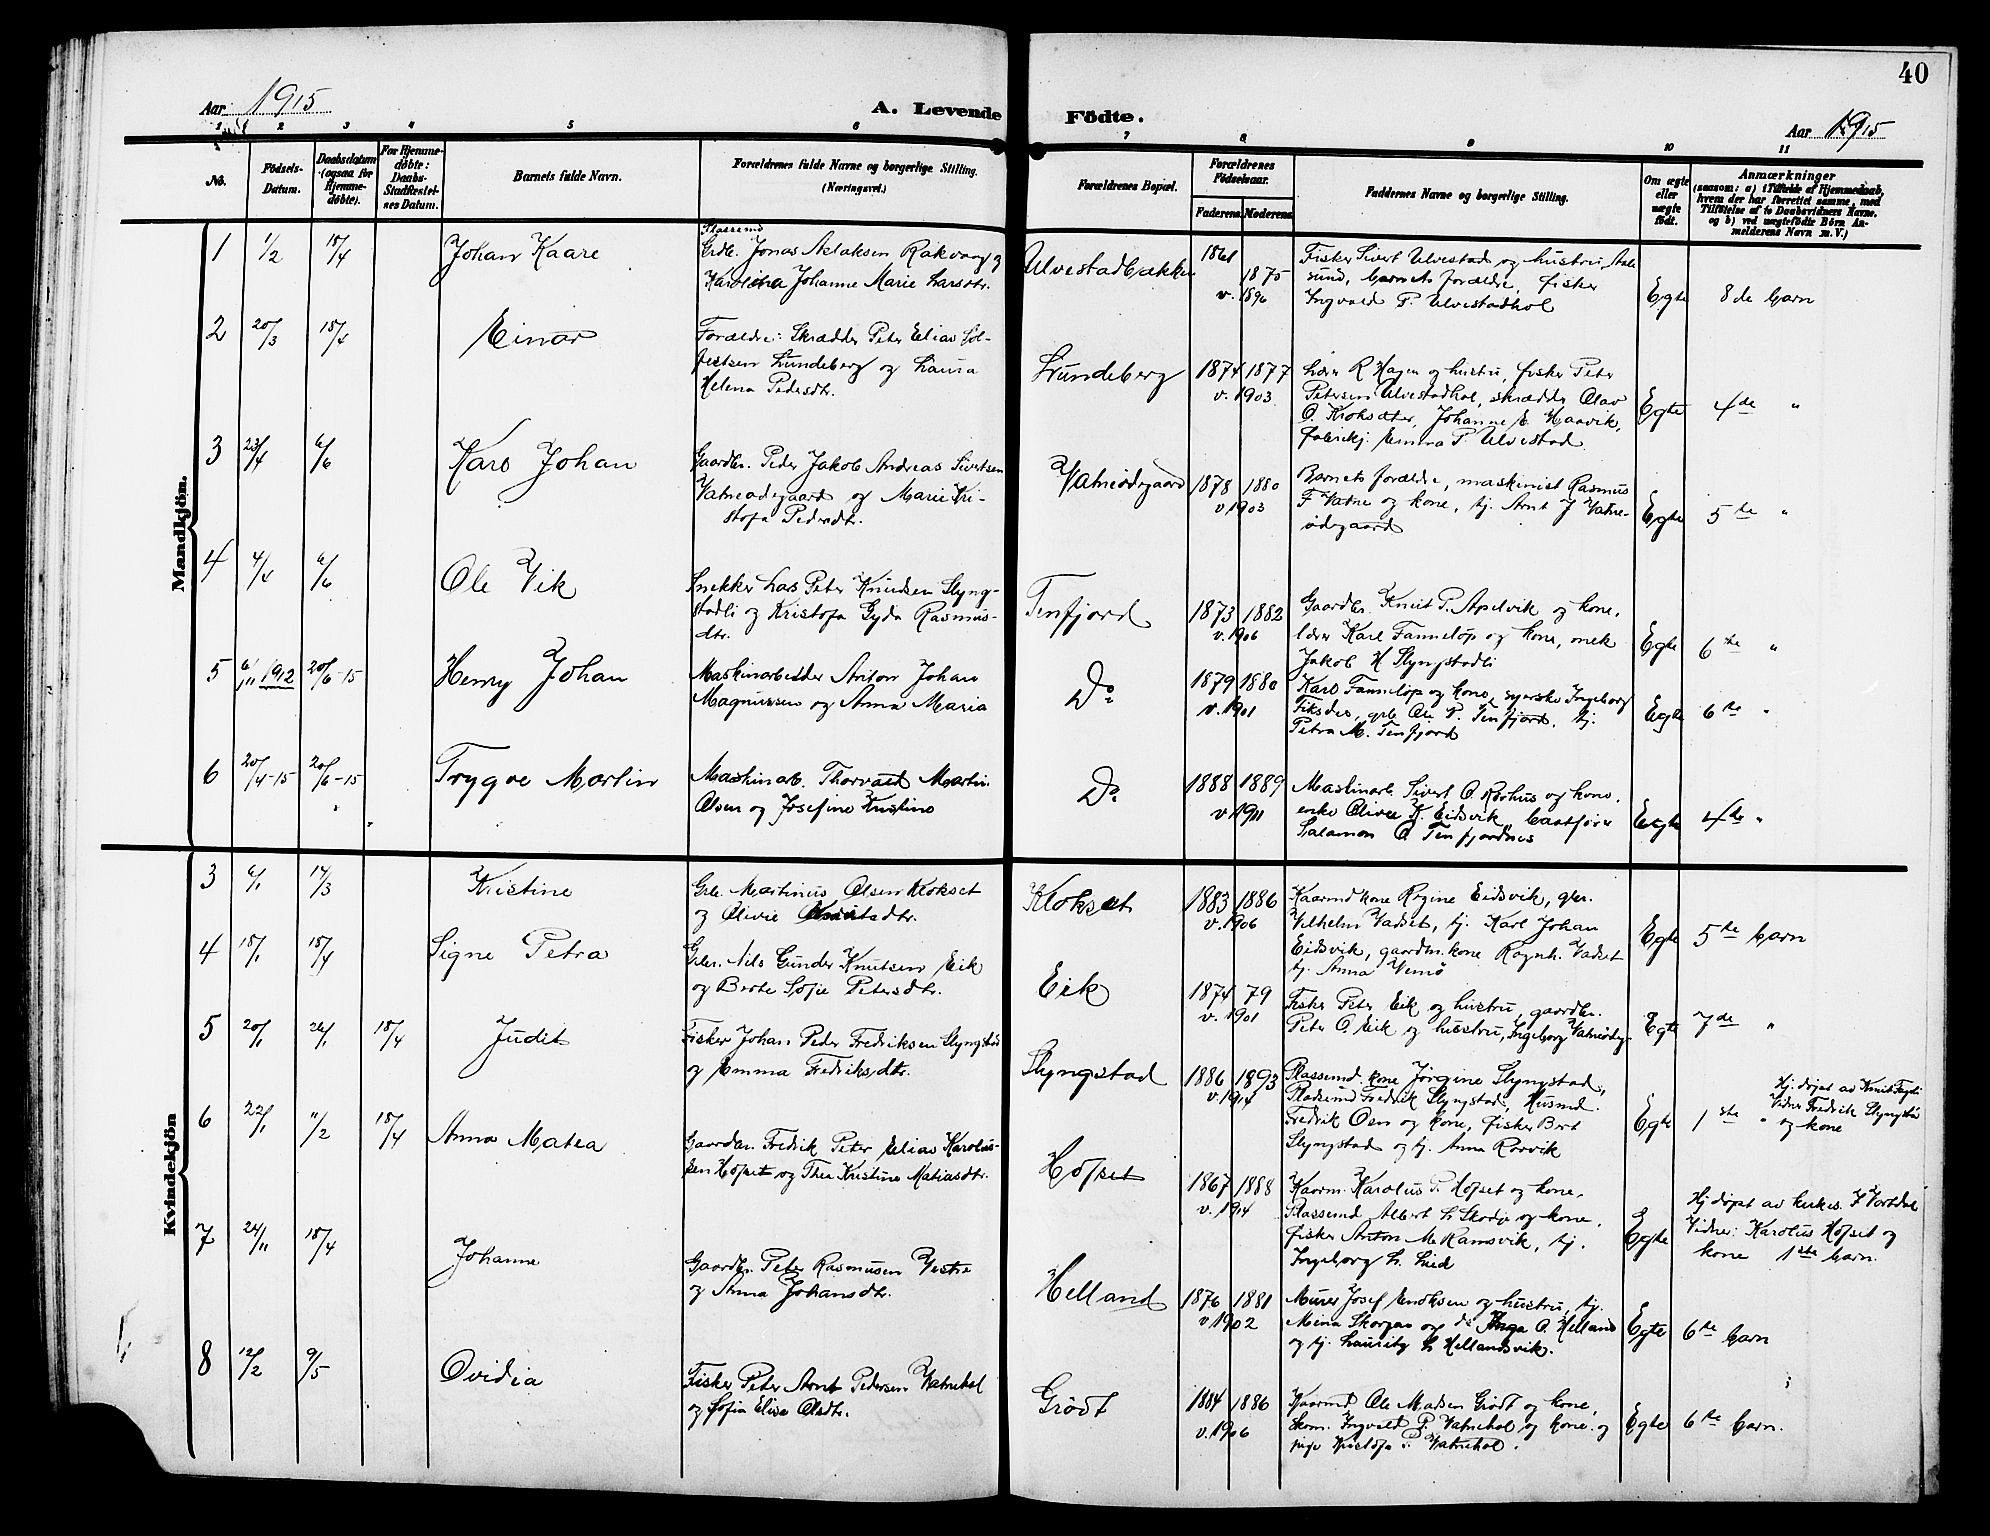 40
Aar 1915
A. Levende Födte.
Aar 1915
1 2 3 4 5 6 7 8 9 10 11
No.
Födsels-
Datum.
Daabsdatum
(ogsaa for
Hjemme-
döbte).
For Hjemme-
döbte:
Daabs-
Stadfæstel-
ses Datum.
Barnets fulde Navn.
Forældrenes fulde Navne og borgerlige Stilling.
(Næringsvei.)
Forældrenes Bopæl.
Forældrenes
Födselsaar.
Faderens. Moderens.
Faddernes Navne og borgerlige Stilling.
Om ægte
eller
uægte
födt.
Anmærkninger
(saasom: a) i Tilfælde af Hjemmedaab,
hvem der har forrettet samme, med
Tilföielse af to Daabsvidners Navne.
og b) ved uægtefödte Börn An-
melderens Navn m. V.)
Mandkjön.
1 1/2 18/4 Johan Kaare
Plassemd
Grbr. Jonas Aslaksen Rakvaag og
Karolina Johanne Marie Larsdtr.
Ulvestadbakken
1861 1875
v. 1896
Fisker Sivert Ulvestad og hustru, Aale
sund, barnets forældre, fisker
Ingvald P. Ulvestadhol
Egte 8de barn
2 20/3 18/4 Einar
Forældre: Skrædder Peter Elias Sol-
festsen Lundeberg og Laura
Helena Pedersdtr.
Lundeberg
1874 1877
v. 1903
Lærer R Hagen og hustru, fisker Peter
Petersen Ulvestadhol, skrædder Olav
O Kroksæter, Johanne E. Haavik,
fabrikj. Emma P. Ulvestad
Egte 4de "
3 23/4 6/6 Karl Johan
Gaardbr. Peder Jakob Andreas Sivertsen
Vatneødegaard og Marie Kri-
stofa Pedersdtr.
Vatneødegaard
1878 1880
v. 1903
Barnets forældre, maskinist Rasmus
F Vatne og kone, tj. Arnt J Vatne-
ødegaard
Egte 5te "
4 4/4 6/6 Ole Vik
Snekker Lars Peter Knudsen Slyng-
stadli og Kristofa Gyda Rasmus-
dtr.
Tenfjord
1873 1882
v. 1906
Gaardbr. Knut P. Apelvik og kone,
lærer Karl Fanneløp og kone, enek
Jakob H Slyngstadli
Egte 6te "
5 6/11 1912 20/6-15 Henry Johan
Maskinarbeider Anton Johan
Magnussen og Anna Maria
Do
1879 1880
v. 1901
Karl Fanneløp og kone, syerske Ingeborg
Fiksdal, grbr. Ole P. Tenfjord, tj.
Petra M. Tenfjord
Egte 6te "
6 20/4-15 20/6-15 Trygve Martin
Maskinarb. Thorvald Martin
Olsen og Josefine Kristine
Do
1888 1889
v. 1911
Maskinarb. Sivert O. Rørhus og kone,
enke Olivie K. Eidsvik, baatfører
Salamon O. Tenfjordnes
Egte 4de "
Kvindekjön
3 6/1 14/3 Kristine
Grbr. Martinus Olsen Klokset
og Olivie Knutsdtr.
Klokset
1883 1886
v. 1906
Kaarmd kone Regine Eidsvik, gbr.
Vilhelm Vadset, tj. Karl Johan
Eidsvik, gaardm. kone Ragnh. Vadset
tj. Anna Vemø
Egte 5te barn
4 18/1 18/4 Signe Petra
Grbr. Nils Gunder Knutsen Eik
og Berte Sofie Petersdtr.
Eik
1874 79
v. 1901
Fisker Peter Eik og hustru, gaardbr.
Peter O. Eik og hustru, Ingeborg Vatneødeg.
Egte 7de "
5 20/1 24/1 18/4 Judit
Fisker Johan Peder Fredriksen Slyngstad
og Emma Fredriksdtr.
Slyngstad
1886 1893
v. 1914
Plassemd. kone Jørgine Slyngstad,
Pladsemd Fredrik Slyngstad, Husmd.
Fredrik Oen og kone, fisker Bert
Slyngstad og tj. Anna Rørvik
Egte 1ste "
Hj. døpt av Knut
Vidner Fredrik Slyngstad
og kone
6 22/1 11/2 18/4 Anna Matea
Gaardbr. Fredrik Peter Elias Karolus-
sen Hofset og Thea Kristine Matiasdtr.
Hofset
1867 1888
v. 1914
Kaarm. Karolus P. Hofset og kone,
Plassemd Albert L Skodje og kone,
fisker Anton M. Ramsvik, tj.
Ingeborg L. Lied
Egte
Hj døpt av kirkes. J Vortdal
Vidner: Karolus Hofset og
kone 1ste barn
7 24/11 18/4 Johanne
Gaardbr. Peter Rasmusen Vestre
og Anna Johansdtr.
Helland
1876 1881
v. 1902
Murer Josef Endksen og hustru, tj.
Mina Skorgan og do Inga O. Helland
og tj. Lauritz L Hellandsvik.
Egte 6te barn
8 12/2 9/5 Ovidia
Fisker Peter Arnt Pedersen Vatnehol
og Sofia Elise Olsdtr.
Grødt
1884 1886
v. 1906
Kaarmd Ole Madsen Grødt og kone,
skom. Ingvald P. Vatnehol og kone og
pige Kristofa P. Vatnehol.
Egte 6te barn.